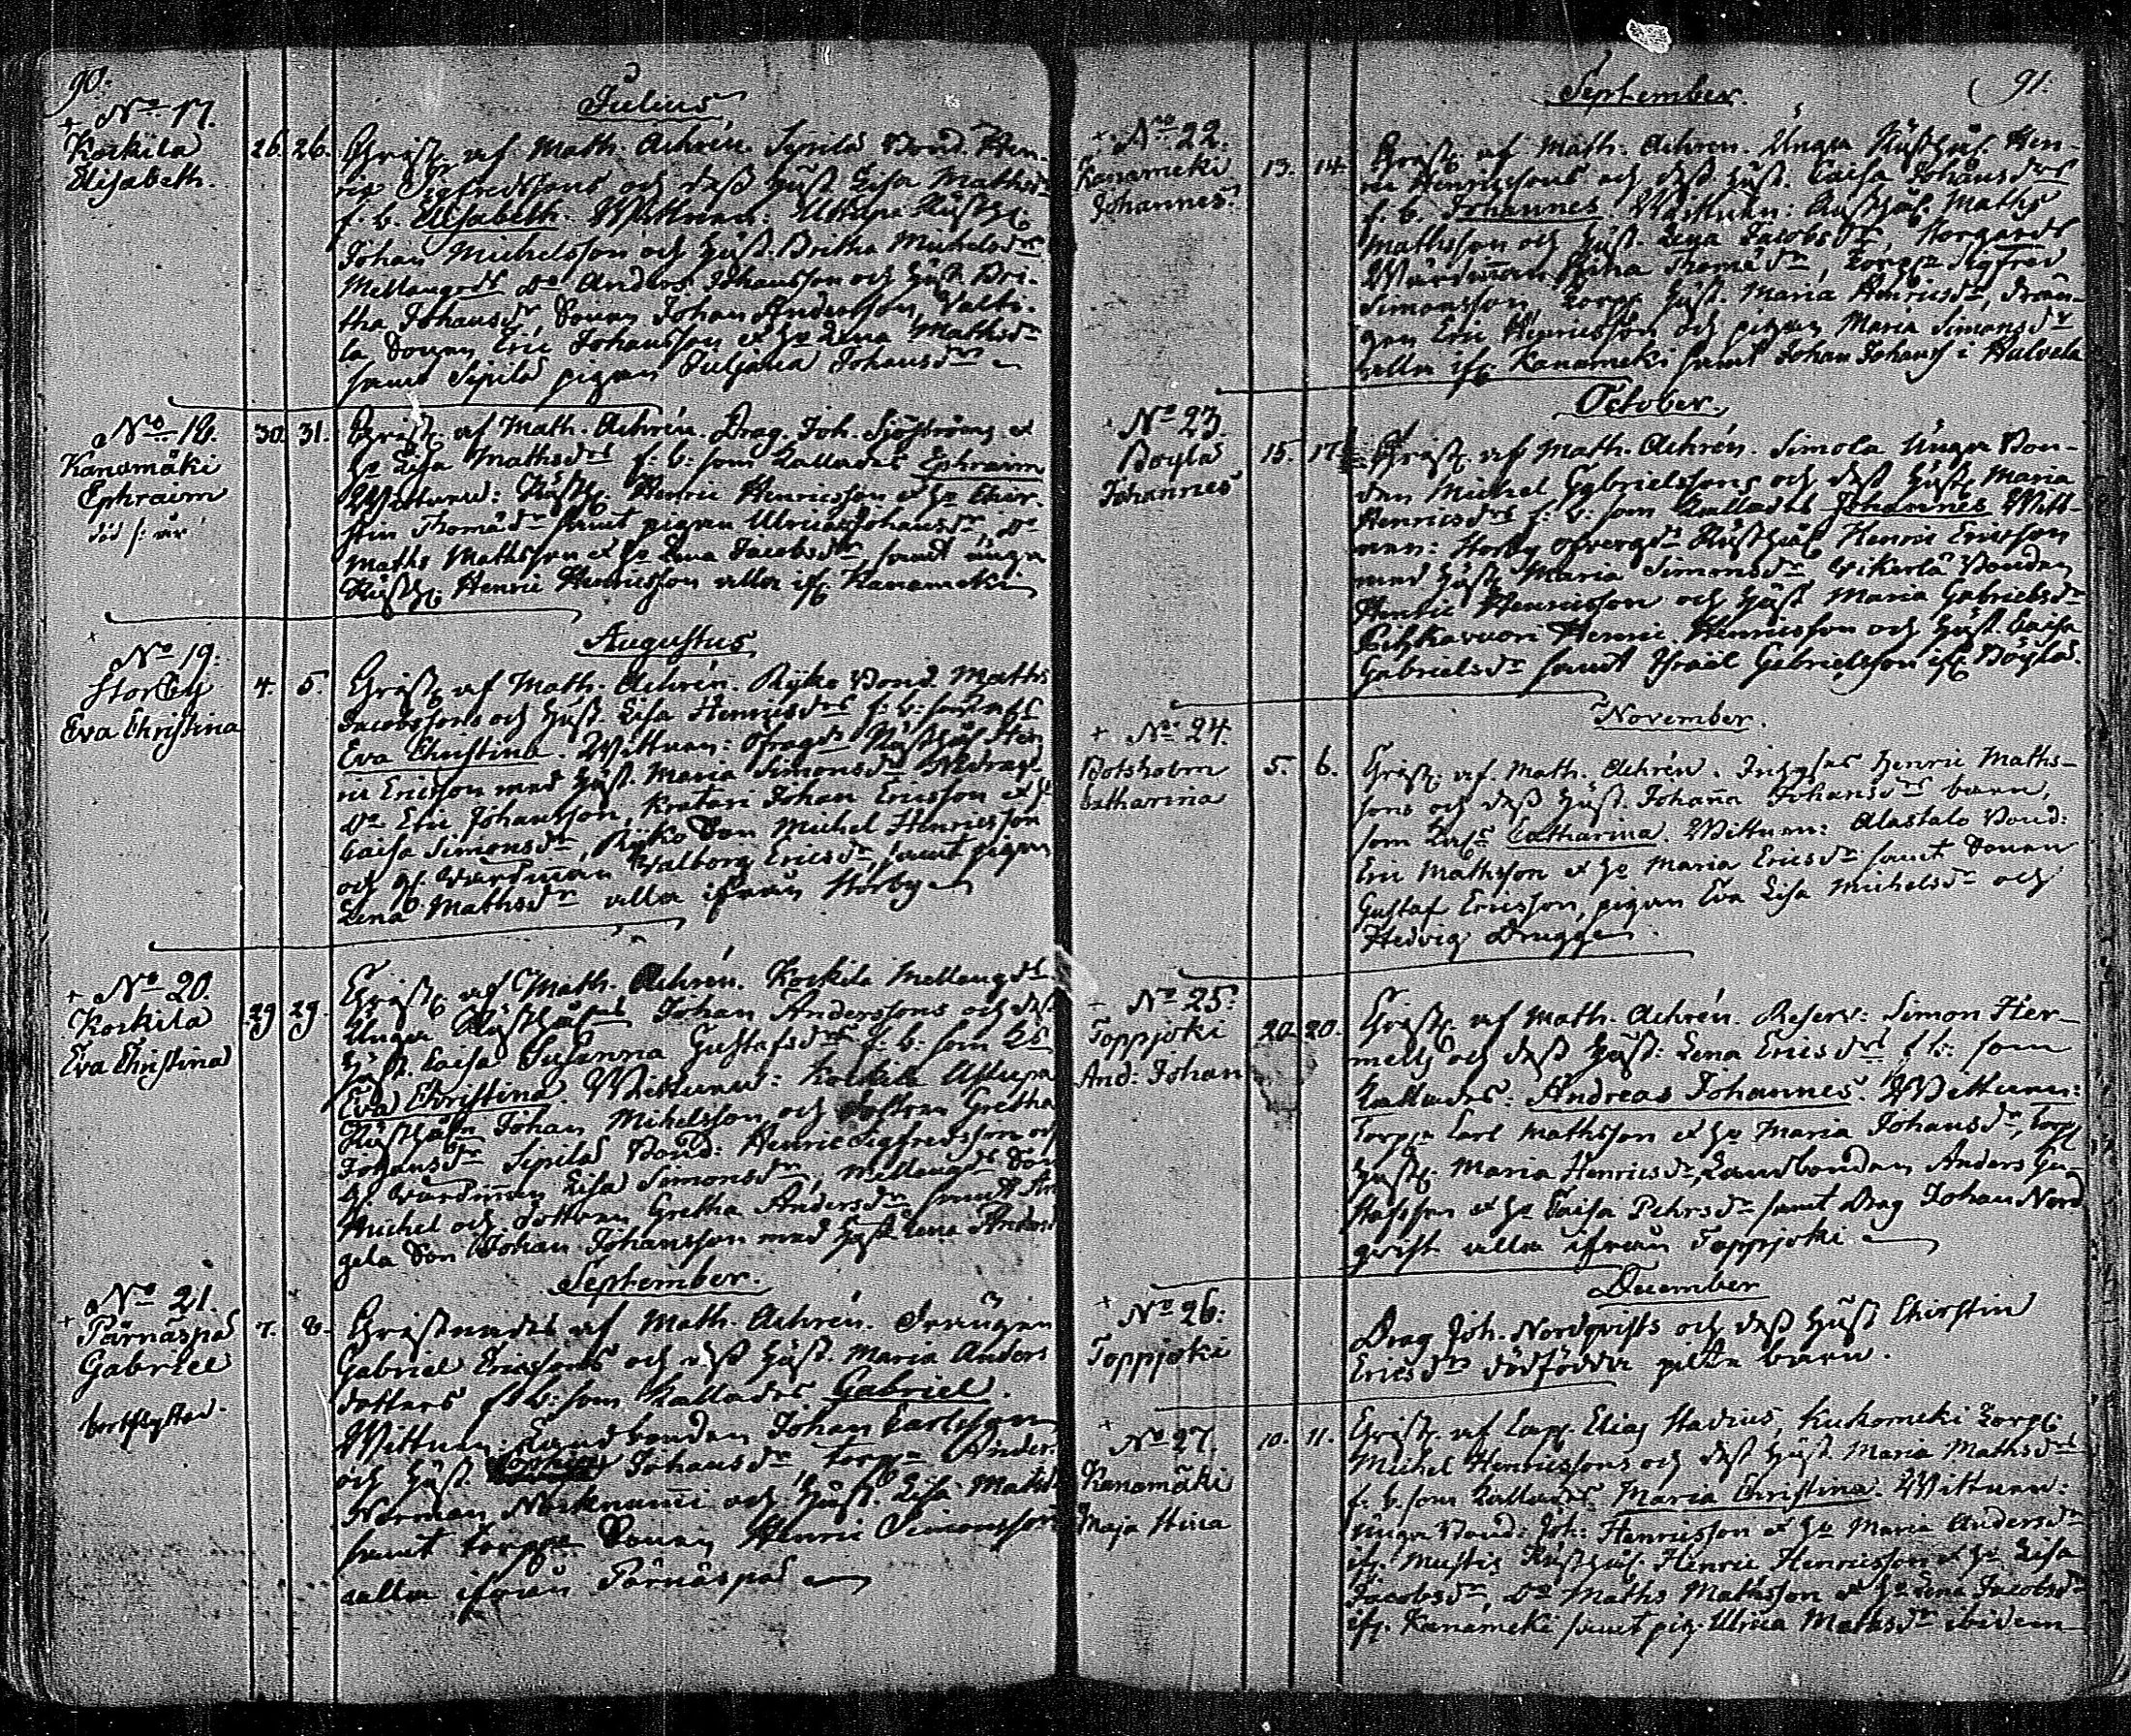 90.
Julius
+ No 17.
Korkila
Elisabeth.
26. 26.
Christ. af Math. Achrén. Sipilä Bond. Hen-
ric Sigfredssons och dess Hust. Lisa Mathsdrs
f. b. Elisabeth. Wittnen: Rusth.
Johan Michelsson och Hust. Britha Michelsdr
Mellangds Do Anders Johansson och Hust. Bri-
tha Johansdr, Sonen Johan Andersson,
la Sonen Eric Johansson et Ho Lena Mathsdr
samt Sipilä pigan Juljana Johansdr
No 18.
Kanamäki
Ephraim
död s: år
30. 31.
Christ. af Math. Achrén. Drag. Joh. et
Ho Lisa Mathsdrs f. b: som kallades Ephraim
Wittnen: Rusth. Henric Henricsson et Ho Chir-
stin Thomädr samt pigan Ulrica Johansdr, Do
Maths Mathsson et Ho Lena Jacobsdr samt unga
Rusth. Henric Henricsson alla if. Kanameki
Augustus
+ No 19.
Storby
Eva Christina
4. 5.
Christ. af Math. Achrén. Ryko Bond. Maths
Jacobssons och Hust. Lisa Henricsdrs f. b:
Eva Christina. Wittnen: Rusthål. Hen
ric Ericsson med Hust. Maria Simonsdr
Do Eric Johansson, Kratari Johan Ericsson et Ho
Caisa Simonsdr, Ryko Son Michel Henricsson
och Walborg Ericsdr, samt pigan
Lena Mathsdr alla ifrån Storby
+ No 20.
Korkila
Eva Christina
29 29.
Christ. af Math. Achrén. Korkila Mellangds
Unga Johan Anderssons och dess
Hust. Caisa Susanna Gustafsdrs f. b: som
Eva Christina. Wittnen: Korkila
Johan Michelsson och dottren Gretha
Johansdr Sipilä Bond: Henric Sigfredsson och
Lisa Simonsdr, Mellangds Son
Michel och dottren Gretha Andersdr samt
gela Son Johan Johansson med Hust. Lena
September.
No 21.
+ Pärnäspä
Gabriel
bortflyttad.
7. 8.
Christnades af Math. Achrén. Drängen
Gabriel Ericssons och dess Hust. Maria Anders
dotters f. b: som kallades Gabriel.
Wittnen: Landbonden Johan Carlsson
och Hust. Johansdr Torp. Ander.
Norman och Hust. Lisa Mathsdr
samt Torp. Sonen Henric Simonsson
alla ifrån Pärnäspä
91.
September.
+ No 22.
Kanameki
Johannes.
13. 14.
Christ. af Math. Achrén. Unga Rusthål. Hen-
ric Henricssons och dess Hust. Caisa Johansdrs
f. b. Johannes. Wittnen: Rusthål. Maths
Mathsson och Hust. Lena Jacobsdr,
Stina Thomädr, Torp. Sigfred
Simonsson, Torp. Hust. Maria Henricsdr, drän-
gen Eric Henricsson och pigan Maria Simonsdr
alla if. Kanameki samt Johan Johans i Hulvela
October.
No 23.
Böylä
Johannes
15. 17.
Christ. af Math. Achrén. Simola Unga Bon-
den Michel Gabrielssons och dess Hust. Maria
Henricsdrs f. b: som kallades Johannes Witt-
nen: Storby Rusthål. Henric Ericsson
med Hust. Maria Simonsdr Bonden
Henric Henricsson och Hust. Maria Gabrielsdr
Henric Henricsson och Hust. Caisa
Gabrielsdr samt Israël Gabrielsson if. Böylä.
November.
+ No 24.
Botsholm
Catharina
5. 6.
Christ. af Math. Achrén. Inhyses Henric Maths-
sons och dess Hust. Johanna Johansdrs barn,
som Catharina. Wittnen: Alastalo Bond:
Eric Mathsson et Ho Maria Ericsdr samt Sonen
Gustaf Ericsson, pigan Eva Lisa Michelsdr och
Hedvig Drugge.
No 25:
Toppjoki
And: Johan
20. 20.
Christ. af Math. Achrén. Reserv: Simon Her-
mells och dess Hust: Lena Ericsdrs f. b: som
kallades: Andreas Johannes. Wittnen:
Torp. Carl Mathsson et Ho Maria Johansdr, Torp.
Hust. Maria Henricsdr, Landbonden Anders Gu-
stafsson et Ho Caisa Pehrsdr samt Drag Johan Nord
qvist alla ifrån Toppjoki
December
+ No 26:
Toppjoki
Drag Joh. Nordqvists och dess Hust Chirstin
Ericsdrs dödfödda pilte barn.
+ No 27.
Kanamäki
Maja Stina
10. 11.
Christ. af Capp. Elias Stadius, Kuhomeki Torp.
Michel Henricssons och dess Hust. Maria Mathsdrs
f. b. som kallades Maria Christina. Wittnen:
Unga Bond: Joh: Henricsson et Ho Maria Andersdr
if. Mustis Rusthål. Henric Henricsson et Ho Lisa
Jacobsdr, Do Maths Mathsson et Ho Lena Jacobsdr
if. Kanameki samt pig. Ulrica Mathsdr ibidem